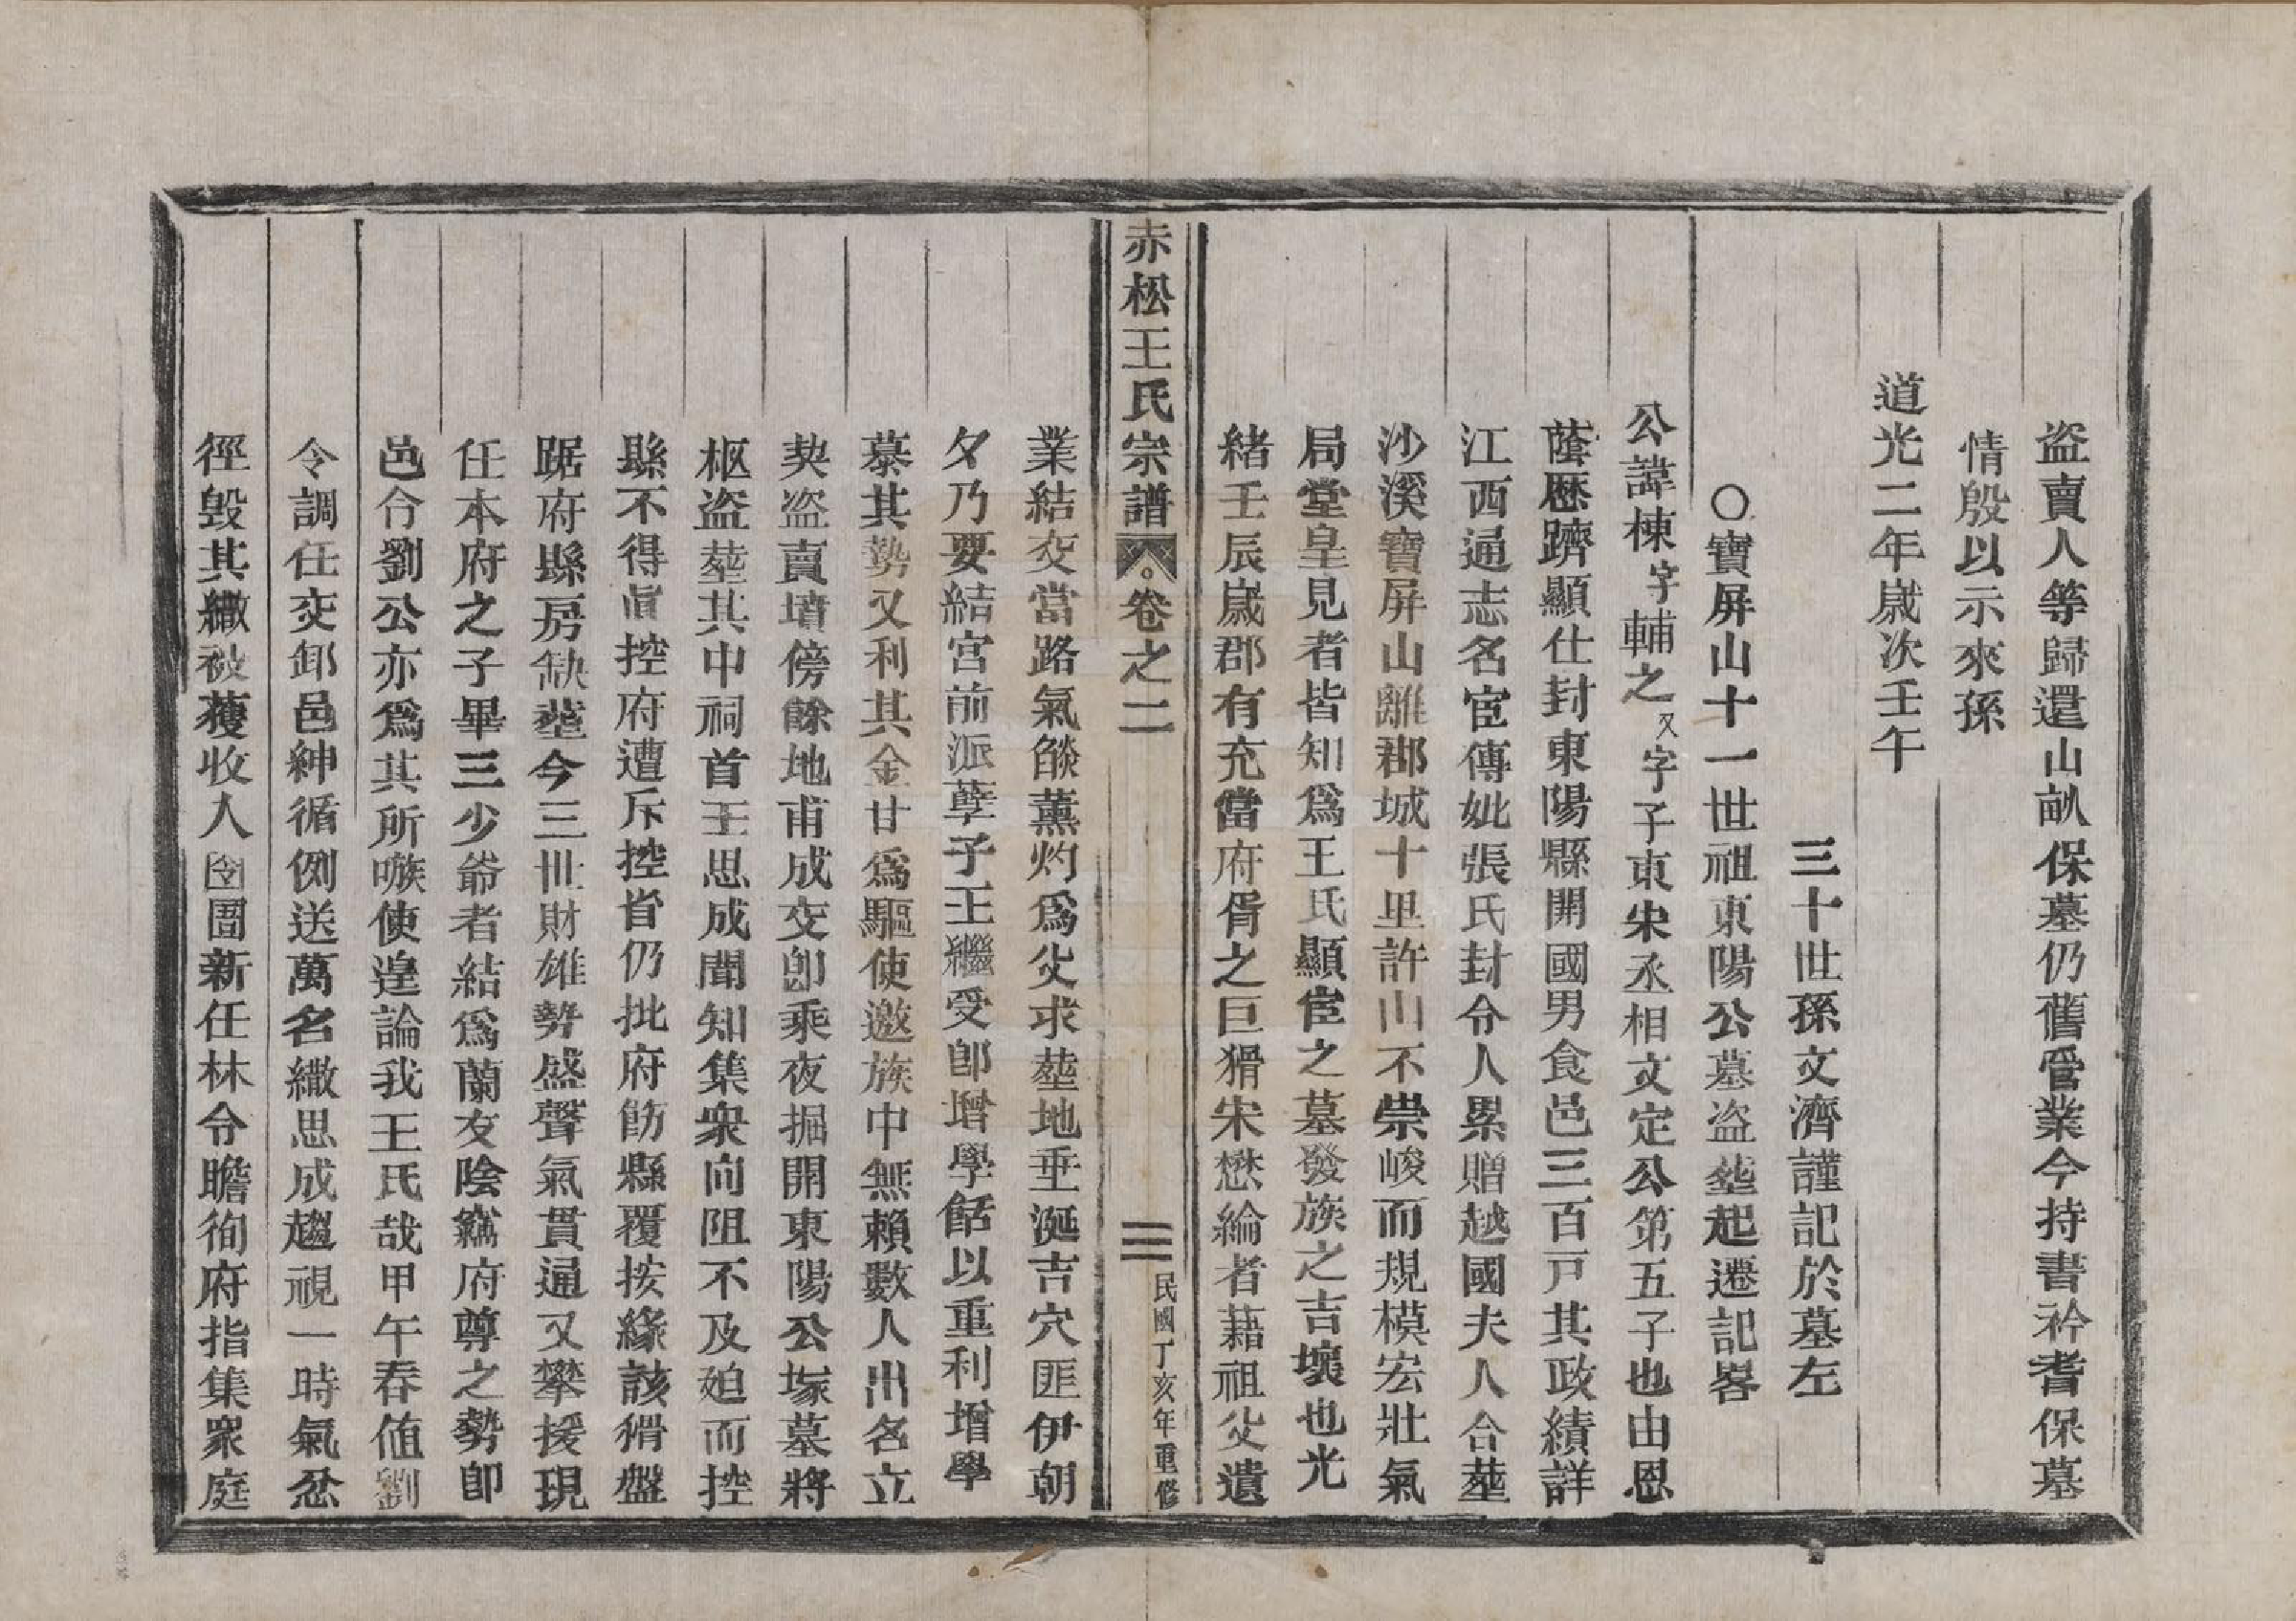 盗賣人等歸還山畝保墓仍舊管業今持書衿耆保墓
情殷以示來孫
道光二年嵗次壬午
三十世孫文濟謹記於墓左
〇寶屏山十一世祖東陽公墓盗塟起遷記畧
公諱棟字輔之又字子東宋丞相文定公第五子也由恩
蔭歷躋顯仕封東陽縣開國男食邑三百戸其政績詳
江西通志名宦傳妣張氏封令人累贈越國夫人合塟
沙溪寶屏山離郡城十里許山不崇峻而規模宏壯氣
局堂皇見者皆知爲王氏顯宦之墓發族之吉壤也光
緒壬辰嵗郡有充當府胥之巨猾宋懋綸者藉祖父遺
赤松王氏宗譜 卷之二 三 民國丁亥年重修
業結交當路氣燄薰灼爲父求塟地垂涎吉穴匪伊朝
夕乃要結宮前派孽子王繼受卽增學餂以重利增學
慕其勢又利其金甘爲驅使邀族中無賴數人出名立
契盗賣墳傍餘地甫成交卽乘夜掘開東陽公塚墓將
柩盗塟其中祠首王思成聞知集衆向阻不及廹而控
縣不得眞控府遭斥控省仍批府飭縣覆按緣該猾盤
踞府縣房缺塟今三世財雄勢盛聲氣貫通又攀援現
任本府之子畢三少爺者結爲蘭友陰竊府尊之勢卽
邑令劉公亦爲其所嗾使遑論我王氏哉甲午春値劉
令調任交卸邑紳循例送萬名繖思成趨視一時氣忿
徑毁其繖被蒦收人囹圄新任林令瞻徇府指集衆庭